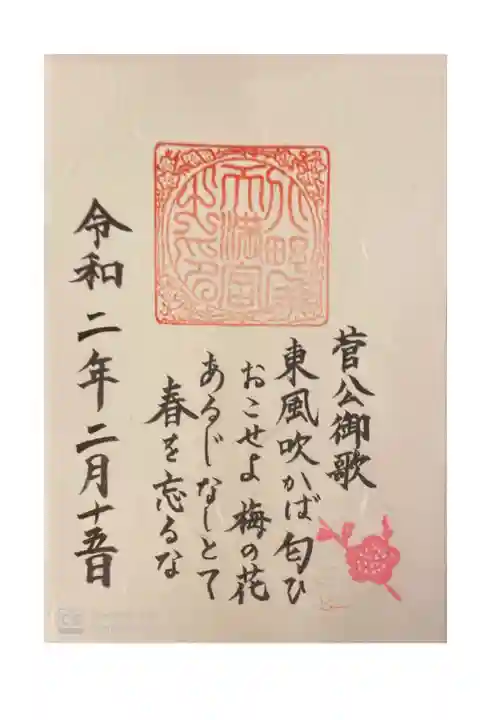 菅公御歌
東風吹かば匂ひ
おこせよ 梅の花
あるじなしとて
春を忘るな
令和二年二月十五日